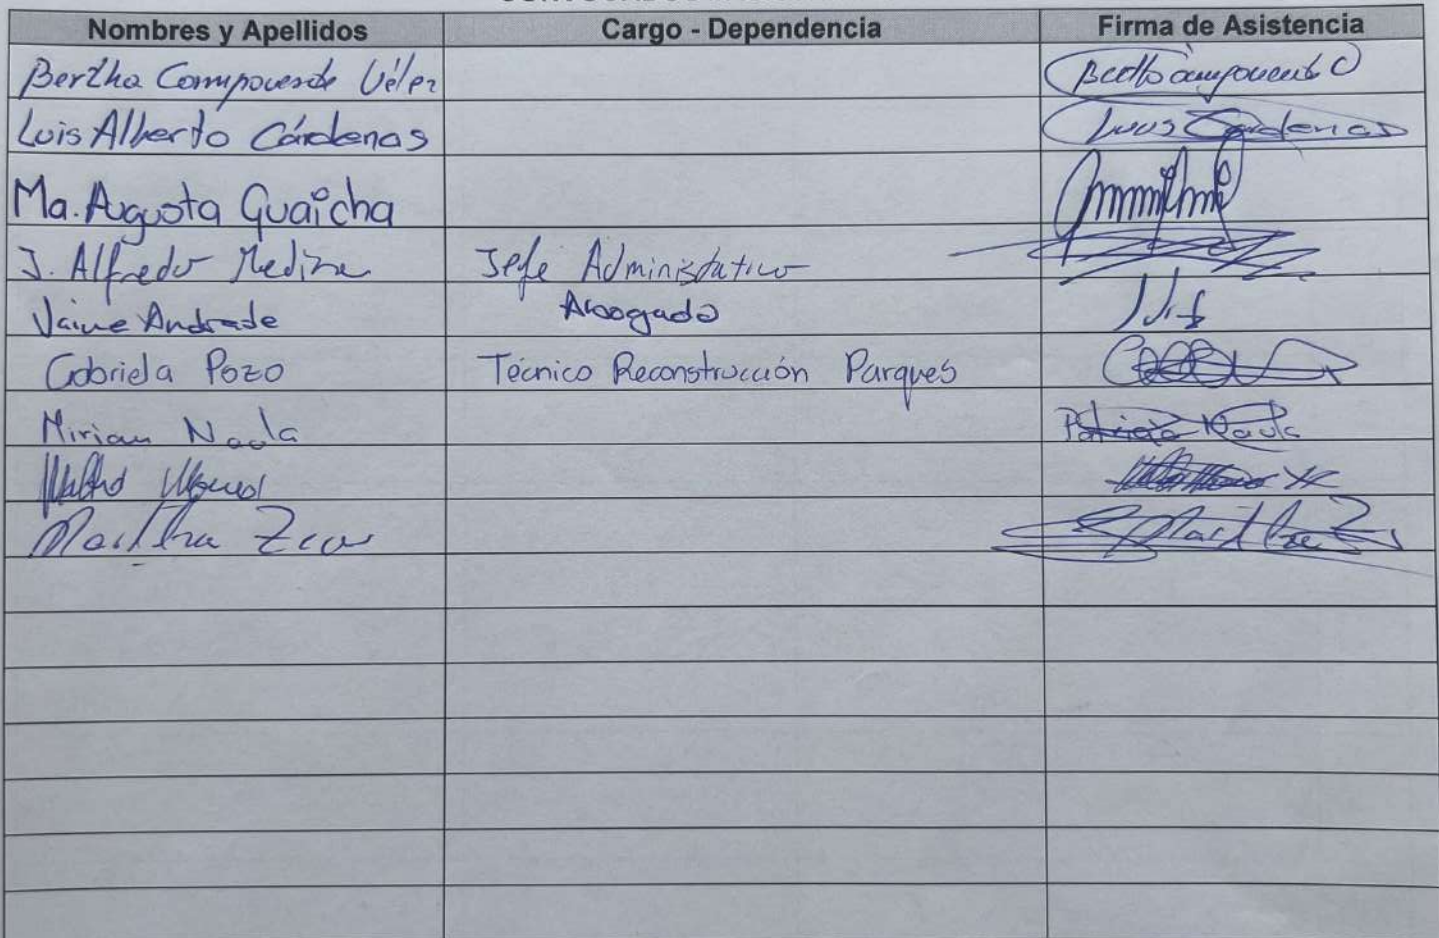 Nombres y Apellidos Cargo - Dependencia Firma de Asistencia
Bertha Campoverde Vélez
Luis Alberto Cárdenas Luis Cardenas
Ma. Augusta Guaicha
J. Alfredo Medina Jefe Administrativo
Jaime Andrade Abogado
Gabriela Pozo Técnico Reconstrucción Parques
Miriam Naula Patricia Naula
Martha